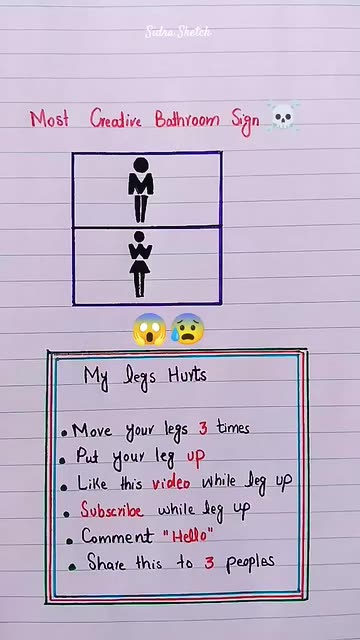 Sidra Sketch
Most Creative Bathroom Sign
My legs Hurts
• Move your legs 3 times
• Put your leg up
• Like this video while leg up
• Subscribe while leg up
• Comment "Hello"
• Share this to 3 peoples